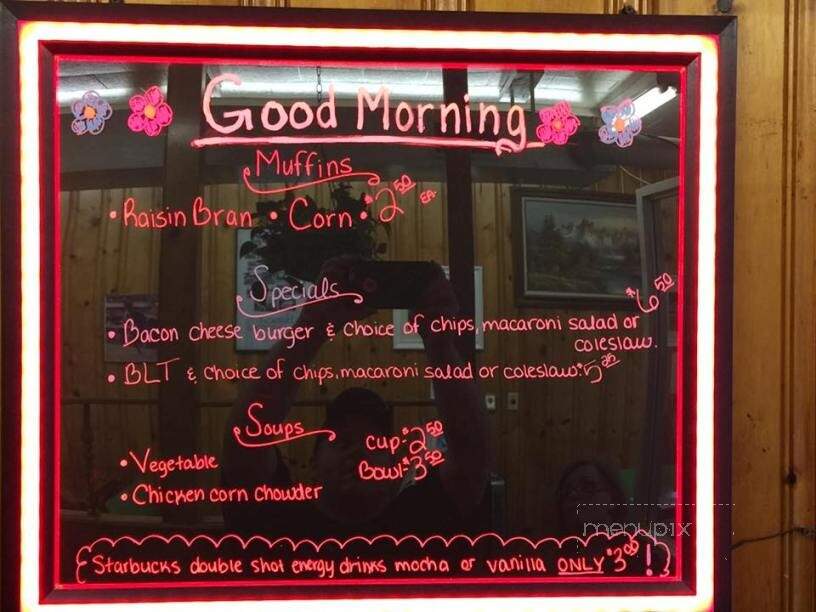 Good Morning
Muffins
• Raisin Bran • Corn • $2.50 EA.
Specials
$6.50
• Bacon cheese burger & choice of chips, macaroni salad or
coleslaw.
• BLT & choice of chips, macaroni salad or coleslaw. $5.25
Soups
cup - $2.50
• Vegetable
Bowl - $3.50
• Chicken corn chowder
Starbucks double shot energy drinks mocha or vanilla ONLY $3.00!
menupix